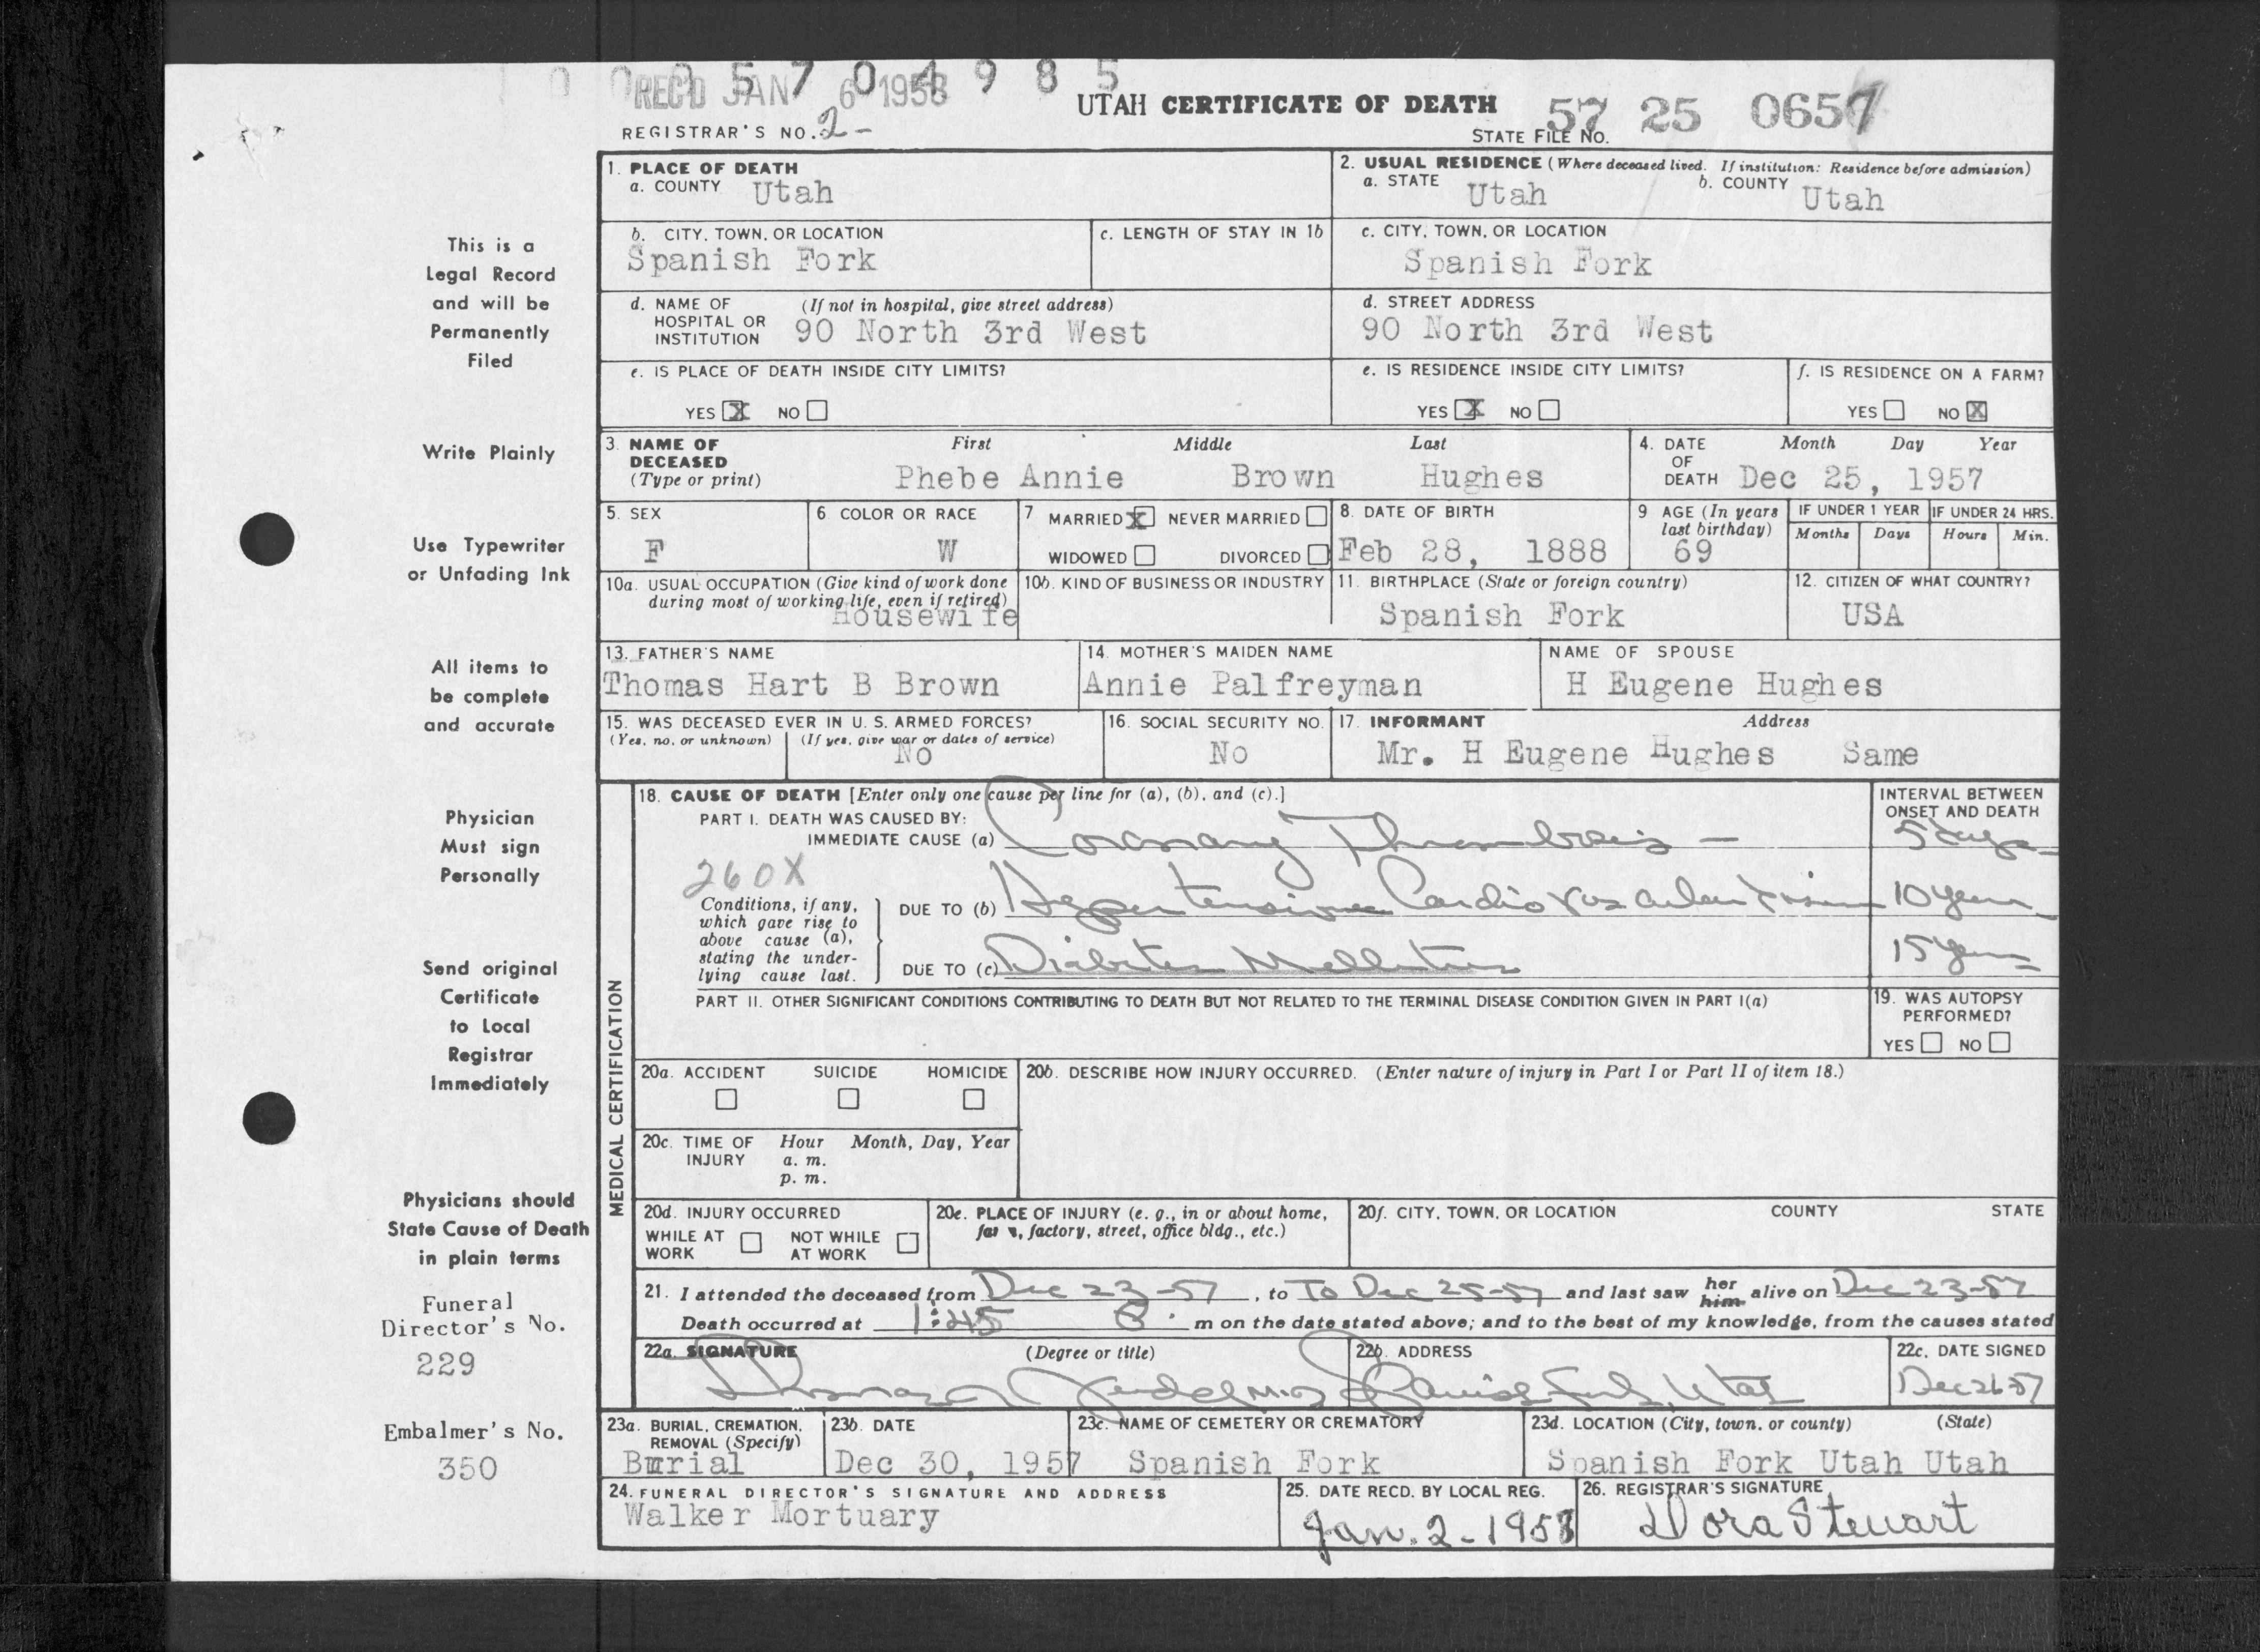 REC'D JAN 6 1958
0 0 0 5 7 0 4 9 8 5
UTAH CERTIFICATE OF DEATH
REGISTRAR'S NO. 2-
STATE FILE NO. 57 25 0657
1. PLACE OF DEATH
a. COUNTY Utah
2. USUAL RESIDENCE (Where deceased lived. If institution: Residence before admission)
a. STATE Utah b. COUNTY Utah
b. CITY, TOWN, OR LOCATION
Spanish Fork
c. LENGTH OF STAY IN 1b
c. CITY, TOWN, OR LOCATION
Spanish Fork
d. NAME OF (If not in hospital, give street address)
HOSPITAL OR
INSTITUTION 90 North 3rd West
d. STREET ADDRESS
90 North 3rd West
e. IS PLACE OF DEATH INSIDE CITY LIMITS?
YES X NO
e. IS RESIDENCE INSIDE CITY LIMITS?
YES X NO
f. IS RESIDENCE ON A FARM?
YES NO X
3. NAME OF DECEASED (Type or print)
First Middle Last
Phebe Annie Brown Hughes
4. DATE OF DEATH
Month Day Year
Dec 25, 1957
5. SEX
F
6 COLOR OR RACE
W
7 MARRIED X NEVER MARRIED
WIDOWED DIVORCED
8. DATE OF BIRTH
Feb 28, 1888
9 AGE (In years last birthday)
69
IF UNDER 1 YEAR
Months Days
IF UNDER 24 HRS.
Hours Min.
10a. USUAL OCCUPATION (Give kind of work done
during most of working life, even if retired)
Housewife
10b. KIND OF BUSINESS OR INDUSTRY
11. BIRTHPLACE (State or foreign country)
Spanish Fork
12. CITIZEN OF WHAT COUNTRY?
USA
13. FATHER'S NAME
Thomas Hart B Brown
14. MOTHER'S MAIDEN NAME
Annie Palfreyman
NAME OF SPOUSE
H Eugene Hughes
15. WAS DECEASED EVER IN U. S. ARMED FORCES?
(Yes, no, or unknown) (If yes, give war or dates of service)
No
16. SOCIAL SECURITY NO.
No
17. INFORMANT Address
Mr. H Eugene Hughes Same
MEDICAL CERTIFICATION
18. CAUSE OF DEATH [Enter only one cause per line for (a), (b), and (c).]
INTERVAL BETWEEN
ONSET AND DEATH
PART I. DEATH WAS CAUSED BY:
IMMEDIATE CAUSE (a) Coronary Thrombosis - 5 days
260X
Conditions, if any,
which gave rise to
above cause (a),
stating the under-
lying cause last.
DUE TO (b) Hypertensive Cardiovascular Disease 10 years
DUE TO (c) Diabetes Mellitus 15 years
PART II. OTHER SIGNIFICANT CONDITIONS CONTRIBUTING TO DEATH BUT NOT RELATED TO THE TERMINAL DISEASE CONDITION GIVEN IN PART I(a)
19. WAS AUTOPSY
PERFORMED?
YES NO
20a. ACCIDENT SUICIDE HOMICIDE
20b. DESCRIBE HOW INJURY OCCURRED. (Enter nature of injury in Part I or Part II of item 18.)
20c. TIME OF INJURY
Hour Month, Day, Year
a. m.
p. m.
20d. INJURY OCCURRED
WHILE AT WORK NOT WHILE AT WORK
20e. PLACE OF INJURY (e. g., in or about home,
farm, factory, street, office bldg., etc.)
20f. CITY, TOWN, OR LOCATION COUNTY STATE
21. I attended the deceased from Dec 23-57, to To Dec 25-57 and last saw her him alive on Dec 23-57
Death occurred at 1:45 m on the date stated above; and to the best of my knowledge, from the causes stated
22a. SIGNATURE (Degree or title)
M.D.
22b. ADDRESS
Spanish Fork, Utah
22c. DATE SIGNED
Dec 26-57
23a. BURIAL, CREMATION,
REMOVAL (Specify)
Burial
23b. DATE
Dec 30, 1957
23c. NAME OF CEMETERY OR CREMATORY
Spanish Fork
23d. LOCATION (City, town, or county) (State)
Spanish Fork Utah Utah
24. FUNERAL DIRECTOR'S SIGNATURE AND ADDRESS
Walker Mortuary
25. DATE RECD. BY LOCAL REG.
Jan. 2-1958
26. REGISTRAR'S SIGNATURE
Dora Stewart
This is a
Legal Record
and will be
Permanently
Filed
Write Plainly
Use Typewriter
or Unfading Ink
All items to
be complete
and accurate
Physician
Must sign
Personally
Send original
Certificate
to Local
Registrar
Immediately
Physicians should
State Cause of Death
in plain terms
Funeral
Director's No.
229
Embalmer's No.
350